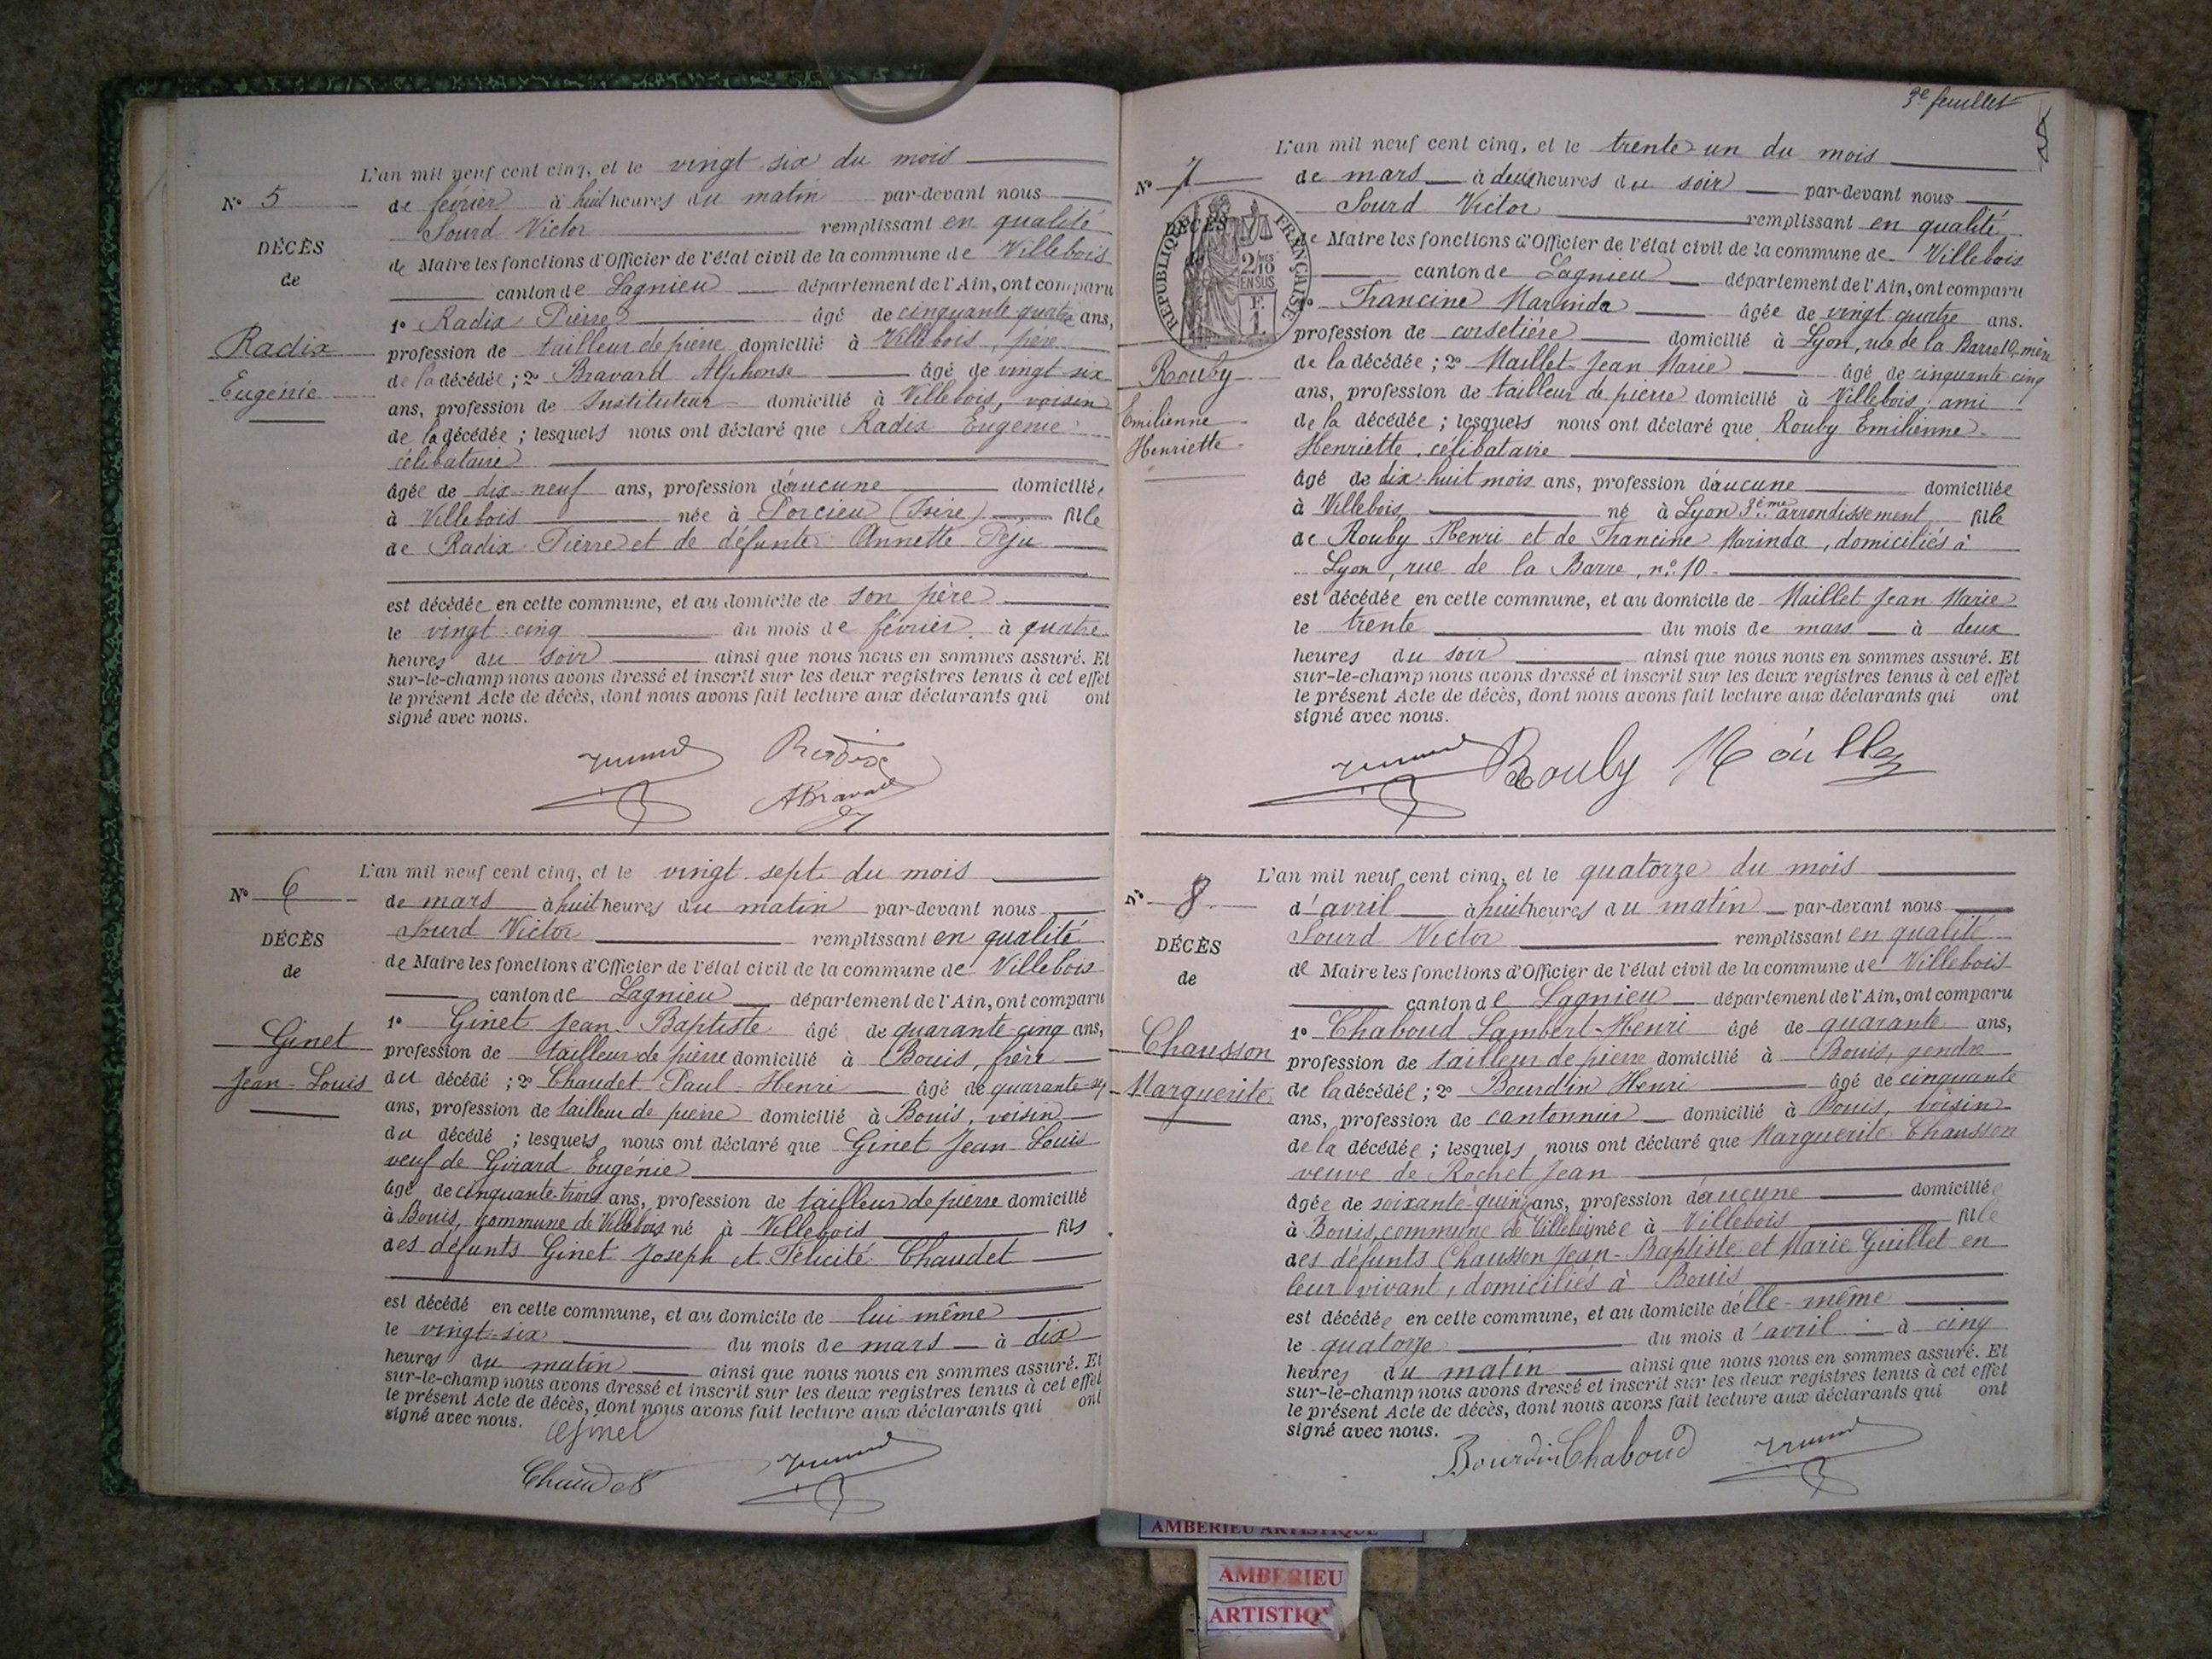 L'an mil neuf cent cinq, et le vingt-six du mois
N° 5
de février à huit heures du matin par-devant nous
Sourd Victor remplissant en qualité
DÉCÈS
de Maire les fonctions d'Officier de l'état civil de la commune de Villebois
de
canton de Lagnieu département de l'Ain, ont comparu
1° Radix Pierre âgé de cinquante quatre ans,
Radix
profession de tailleur de pierre domicilié à Villebois, père
de la décédée ; 2° Bravard Alphonse âgé de vingt-six
Eugénie
ans, profession de Instituteur domicilié à Villebois, voisin
de la décédée ; lesquels nous ont déclaré que Radix Eugénie
célibataire
âgée de dix-neuf ans, profession d'aucune domiciliée
à Villebois née à Porcieu (Isère) fille
de Radix Pierre et de défunte Annette Péju
est décédée en cette commune, et au domicile de son père
le vingt-cinq du mois de février à quatre
heures du soir ainsi que nous nous en sommes assuré. Et
sur-le-champ nous avons dressé et inscrit sur les deux registres tenus à cet effet
le présent Acte de décès, dont nous avons fait lecture aux déclarants qui ont
signé avec nous.
Radix
ABravard
L'an mil neuf cent cinq, et le vingt-sept du mois
N° 6
de mars à huit heures du matin par-devant nous
Sourd Victor remplissant en qualité
DÉCÈS
de Maire les fonctions d'Officier de l'état civil de la commune de Villebois
de
canton de Lagnieu département de l'Ain, ont comparu
1° Ginet Jean-Baptiste âgé de quarante-cinq ans,
Ginet
profession de tailleur de pierre domicilié à Bouis, frère
Jean-Louis
du décédé ; 2° Chaudet Paul-Henri âgé de quarante-
ans, profession de tailleur de pierre domicilié à Bouis, voisin
du décédé ; lesquels nous ont déclaré que Ginet Jean-Louis
veuf de Girard Eugénie
âgé de cinquante-trois ans, profession de tailleur de pierre domicilié
à Bouis, commune de Villebois né à Villebois fils
des défunts Ginet Joseph et Félicité Chaudet
est décédé en cette commune, et au domicile de lui même
le vingt-six du mois de mars à dix
heures du matin ainsi que nous nous en sommes assuré. Et
sur-le-champ nous avons dressé et inscrit sur les deux registres tenus à cet effet
le présent Acte de décès, dont nous avons fait lecture aux déclarants qui ont
signé avec nous.
Ginet
Chaudet
3e feuillet
L'an mil neuf cent cinq, et le trente-un du mois
N° 7
de mars à deux heures du soir par-devant nous
Sourd Victor remplissant en qualité
DÉCÈS
RÉPUBLIQUE FRANÇAISE
2/10 EN SUS
F. 1.
de Maire les fonctions d'Officier de l'état civil de la commune de Villebois
canton de Lagnieu département de l'Ain, ont comparu
1° Francine Marinda âgée de vingt quatre ans.
profession de corsetière domicilié à Lyon, rue de la Barre 10, mère
de la décédée ; 2° Maillet Jean Marie âgé de cinquante cinq
Rouby
ans, profession de tailleur de pierre domicilié à Villebois, ami
Emilienne
de la décédée ; lesquels nous ont déclaré que Rouby Emilienne
Henriette
Henriette, célibataire
âgé de dix-huit mois ans, profession d'aucune domiciliée
à Villebois né à Lyon 3ème arrondissement fille
de Rouby Henri et de Francine Marinda, domiciliés à
Lyon, rue de la Barre, n° 10
est décédée en cette commune, et au domicile de Maillet Jean Marie
le trente du mois de mars à deux
heures du soir ainsi que nous nous en sommes assuré. Et
sur-le-champ nous avons dressé et inscrit sur les deux registres tenus à cet effet
le présent Acte de décès, dont nous avons fait lecture aux déclarants qui ont
signé avec nous.
Rouby
L'an mil neuf cent cinq, et le quatorze du mois
N° 8
d'avril à huit heures du matin par-devant nous
Sourd Victor remplissant en qualité
DÉCÈS
de Maire les fonctions d'Officier de l'état civil de la commune de Villebois
de
canton de Lagnieu département de l'Ain, ont comparu
1° Chaboud Lambert-Henri âgé de quarante ans,
Chausson
profession de tailleur de pierre domicilié à Bouis, gendre
Marguerite
de la décédée ; 2° Bourdin Henri âgé de cinquante
ans, profession de cantonnier domicilié à Bouis, voisin
de la décédée ; lesquels nous ont déclaré que Marguerite Chausson
veuve de Rochet Jean
âgée de soixante-quinze ans, profession d'aucune domiciliée
à Bouis, commune de Villebois née à Villebois fille
des défunts Chausson Jean-Baptiste et Marie Guillet en
leur vivant, domiciliés à Bouis
est décédée en cette commune, et au domicile d'elle-même
le quatorze du mois d'avril à cinq
heures du matin ainsi que nous nous en sommes assuré. Et
sur-le-champ nous avons dressé et inscrit sur les deux registres tenus à cet effet
le présent Acte de décès, dont nous avons fait lecture aux déclarants qui ont
signé avec nous.
Bourdin Chaboud
AMBERIEU ARTISTIQUE
AMBERIEU
ARTISTIQ